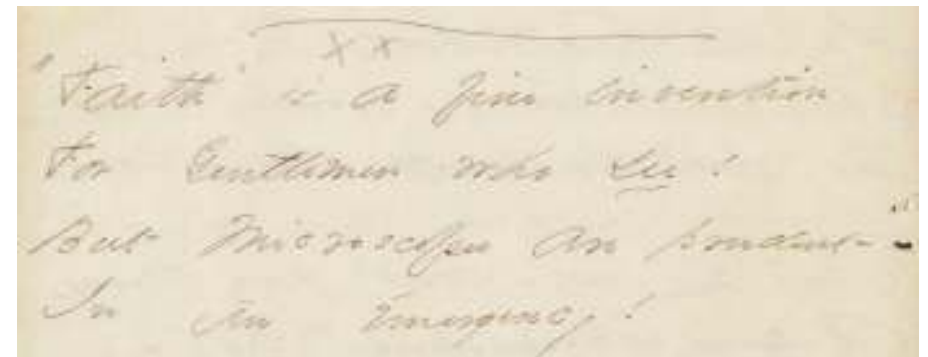 x x
"Faith" is a fine invention
For Gentlemen who see!
But Microscopes are prudent
In an Emergency!